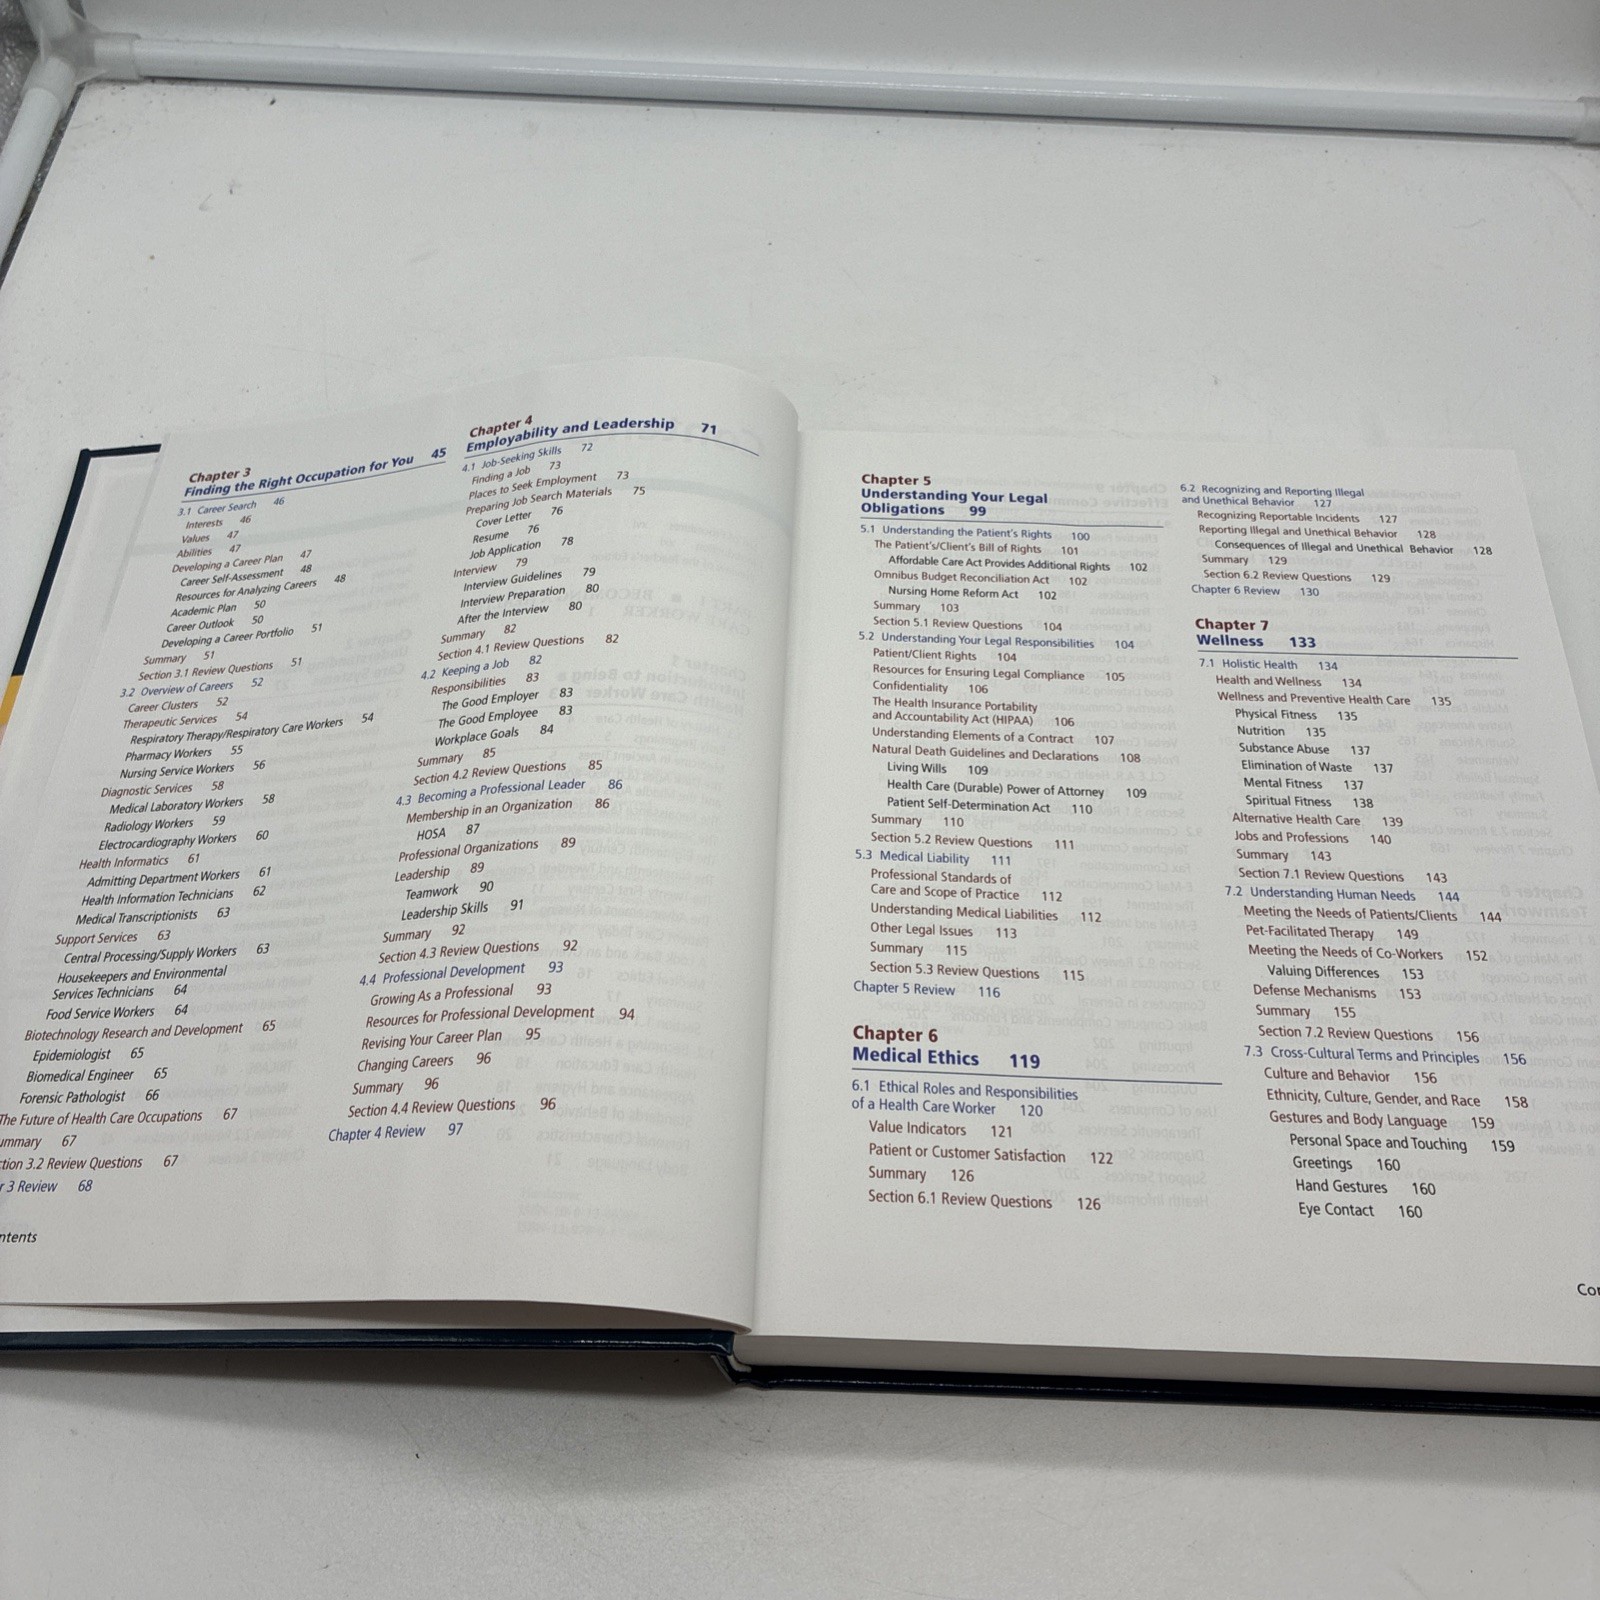 Chapter 3
Finding the Right Occupation for You 45
3.1 Career Search 46
Interests 46
Values 47
Abilities 47
Developing a Career Plan 47
Career Self-Assessment 48
Resources for Analyzing Careers 48
Academic Plan 50
Career Outlook 50
Developing a Career Portfolio 51
Summary 51
Section 3.1 Review Questions 51
3.2 Overview of Careers 52
Career Clusters 52
Therapeutic Services 54
Respiratory Therapy/Respiratory Care Workers 54
Pharmacy Workers 55
Nursing Service Workers 56
Diagnostic Services 58
Medical Laboratory Workers 58
Radiology Workers 59
Electrocardiography Workers 60
Health Informatics 61
Admitting Department Workers 61
Health Information Technicians 62
Medical Transcriptionists 63
Support Services 63
Central Processing/Supply Workers 63
Housekeepers and Environmental
Services Technicians 64
Food Service Workers 64
Biotechnology Research and Development 65
Epidemiologist 65
Biomedical Engineer 65
Forensic Pathologist 66
The Future of Health Care Occupations 67
ummary 67
tion 3.2 Review Questions 67
r 3 Review 68
ntents
Chapter 4
Employability and Leadership 71
4.1 Job-Seeking Skills 72
Finding a Job 73
Places to Seek Employment 73
Preparing Job Search Materials 75
Cover Letter 76
Resume 76
Job Application 78
Interview 79
Interview Guidelines 79
Interview Preparation 80
After the Interview 80
Summary 82
Section 4.1 Review Questions 82
4.2 Keeping a Job 82
Responsibilities 83
The Good Employer 83
The Good Employee 83
Workplace Goals 84
Summary 85
Section 4.2 Review Questions 85
4.3 Becoming a Professional Leader 86
Membership in an Organization 86
HOSA 87
Professional Organizations 89
Leadership 89
Teamwork 90
Leadership Skills 91
Summary 92
Section 4.3 Review Questions 92
4.4 Professional Development 93
Growing As a Professional 93
Resources for Professional Development 94
Revising Your Career Plan 95
Changing Careers 96
Summary 96
Section 4.4 Review Questions 96
Chapter 4 Review 97
Chapter 5
Understanding Your Legal
Obligations 99
5.1 Understanding the Patient's Rights 100
The Patient's/Client's Bill of Rights 101
Affordable Care Act Provides Additional Rights 102
Omnibus Budget Reconciliation Act 102
Nursing Home Reform Act 102
Summary 103
Section 5.1 Review Questions 104
5.2 Understanding Your Legal Responsibilities 104
Patient/Client Rights 104
Resources for Ensuring Legal Compliance 105
Confidentiality 106
The Health Insurance Portability
and Accountability Act (HIPAA) 106
Understanding Elements of a Contract 107
Natural Death Guidelines and Declarations 108
Living Wills 109
Health Care (Durable) Power of Attorney 109
Patient Self-Determination Act 110
Summary 110
Section 5.2 Review Questions 111
5.3 Medical Liability 111
Professional Standards of
Care and Scope of Practice 112
Understanding Medical Liabilities 112
Other Legal Issues 113
Summary 115
Section 5.3 Review Questions 115
Chapter 5 Review 116
Chapter 6
Medical Ethics 119
6.1 Ethical Roles and Responsibilities
of a Health Care Worker 120
Value Indicators 121
Patient or Customer Satisfaction 122
Summary 126
Section 6.1 Review Questions 126
6.2 Recognizing and Reporting Illegal
and Unethical Behavior 127
Recognizing Reportable Incidents 127
Reporting Illegal and Unethical Behavior 128
Consequences of Illegal and Unethical Behavior 128
Summary 129
Section 6.2 Review Questions 129
Chapter 6 Review 130
Chapter 7
Wellness 133
7.1 Holistic Health 134
Health and Wellness 134
Wellness and Preventive Health Care 135
Physical Fitness 135
Nutrition 135
Substance Abuse 137
Elimination of Waste 137
Mental Fitness 137
Spiritual Fitness 138
Alternative Health Care 139
Jobs and Professions 140
Summary 143
Section 7.1 Review Questions 143
7.2 Understanding Human Needs 144
Meeting the Needs of Patients/Clients 144
Pet-Facilitated Therapy 149
Meeting the Needs of Co-Workers 152
Valuing Differences 153
Defense Mechanisms 153
Summary 155
Section 7.2 Review Questions 156
7.3 Cross-Cultural Terms and Principles 156
Culture and Behavior 156
Ethnicity, Culture, Gender, and Race 158
Gestures and Body Language 159
Personal Space and Touching 159
Greetings 160
Hand Gestures 160
Eye Contact 160
Con